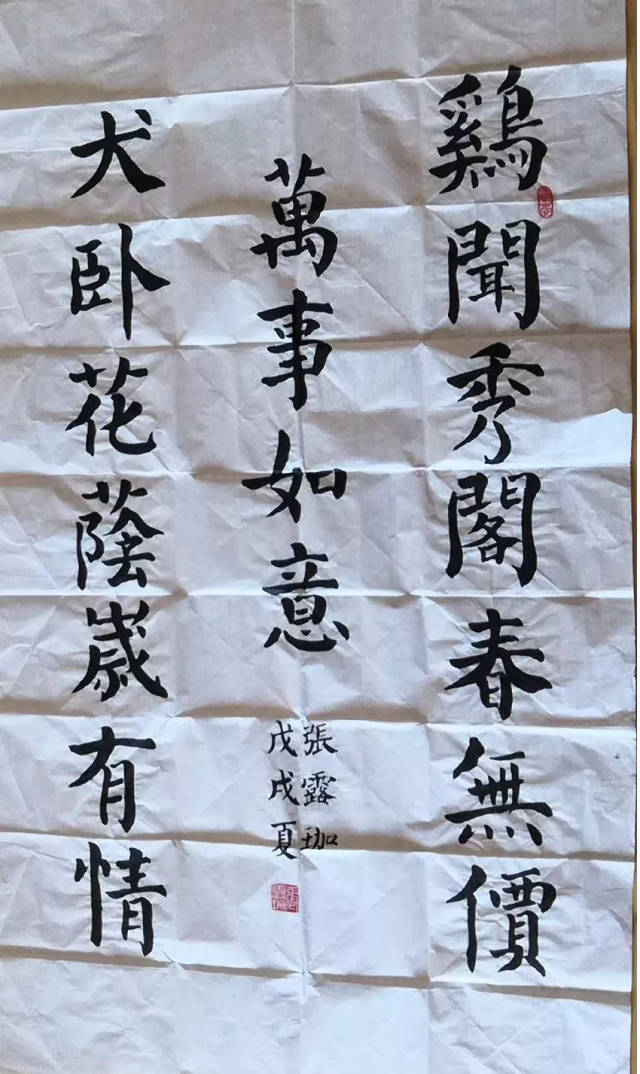 鷄聞秀閣春無價
萬事如意
犬卧花蔭歲有情
張露珈
戊戌夏